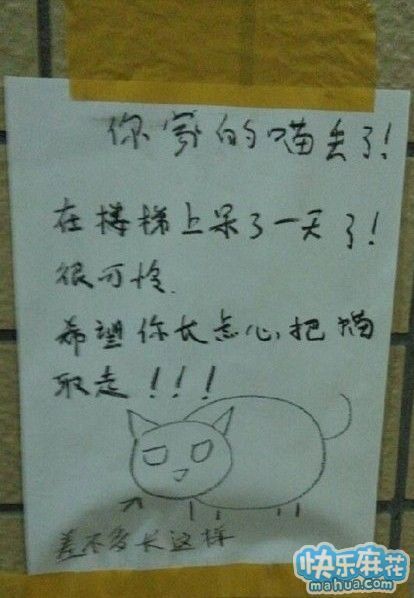 你家的喵丢了！
在楼梯上呆了一天了！
很可怜.
希望你长点心把猫
取走！！！
差不多长这样
快乐麻花
mahua.com